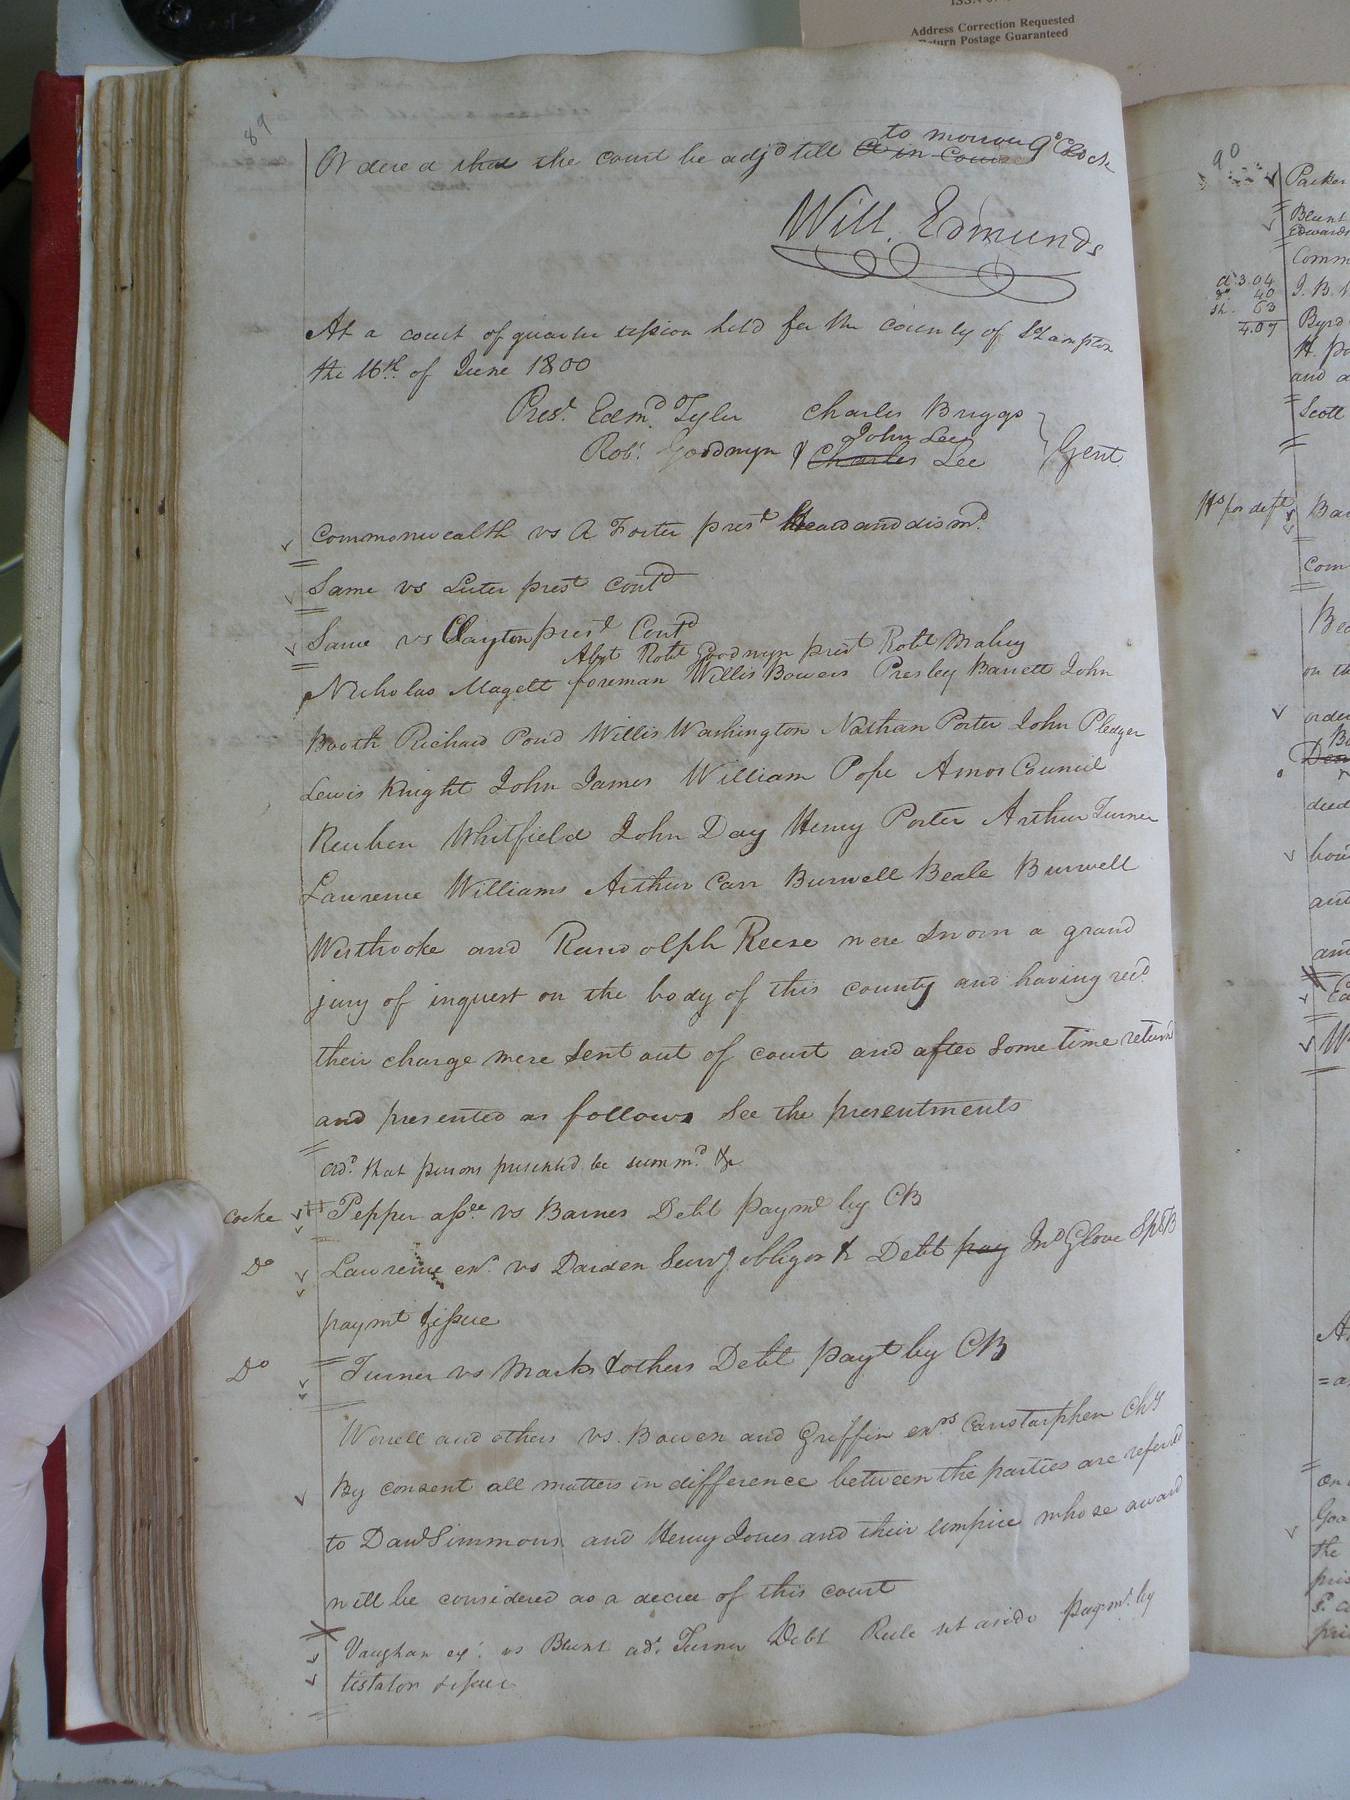 Address Correction Requested
Return Postage Guaranteed
89
Ordered that the court be adjd till to morrow 9 oClock
Will. Edmunds
At a court of quarter session held for the county of SHampton
the 16th of June 1800
Prest. Edmd. Tyler Charles Briggs
Robt. Goodwyn & Charles John Lee Lee } Gent.
Commonwealth vs A Foster prest. Heard and dismd.
Same vs Luter prest Contd
Same vs Clayton prest Contd
Abst Robt Goodwyn prest Robt Mabry
Nicholas Magett foreman Willis Bowers Presley Barrett John
Booth Richard Pond Willis Washington Nathan Porter John Pledger
Lewis Knight John James William Pope Amos Council
Reuben Whitfield John Day Henry Porter Arthur Turner
Lawrence Williams Arthur Carr Burwell Beale Burwell
Westbrooke and Randolph Reese were sworn a grand
jury of inquest on the body of this county and having recd.
their charge were sent out of court and after some time returnd
and presented as follows see the presentments
ord. that persons presented be summd. &c
Cocke Pepper assee vs Barnes Debt paymt by CB
Do Lawrence exr. vs Darden Surv obligor & Debt pay Jno Glover Sp B
paymt & issue
Do Turner vs Marks & others Debt payt by CB
Worrell and others vs. Bowen and Griffin exrs Canstarphen Chy
By consent all matters in difference between the parties are referred
to Davd Simmons and Henry Jones and their umpire whose award
will be considered as a decree of this court
Vaughan exr. vs Blunt adr. Turner Debt Rule set aside paymt. by
testator & issue
90
Parker
Blunt
Edwards
3.04
40
63
4.07
J. B.
Byrd
and
Scott
for deft
on the
the